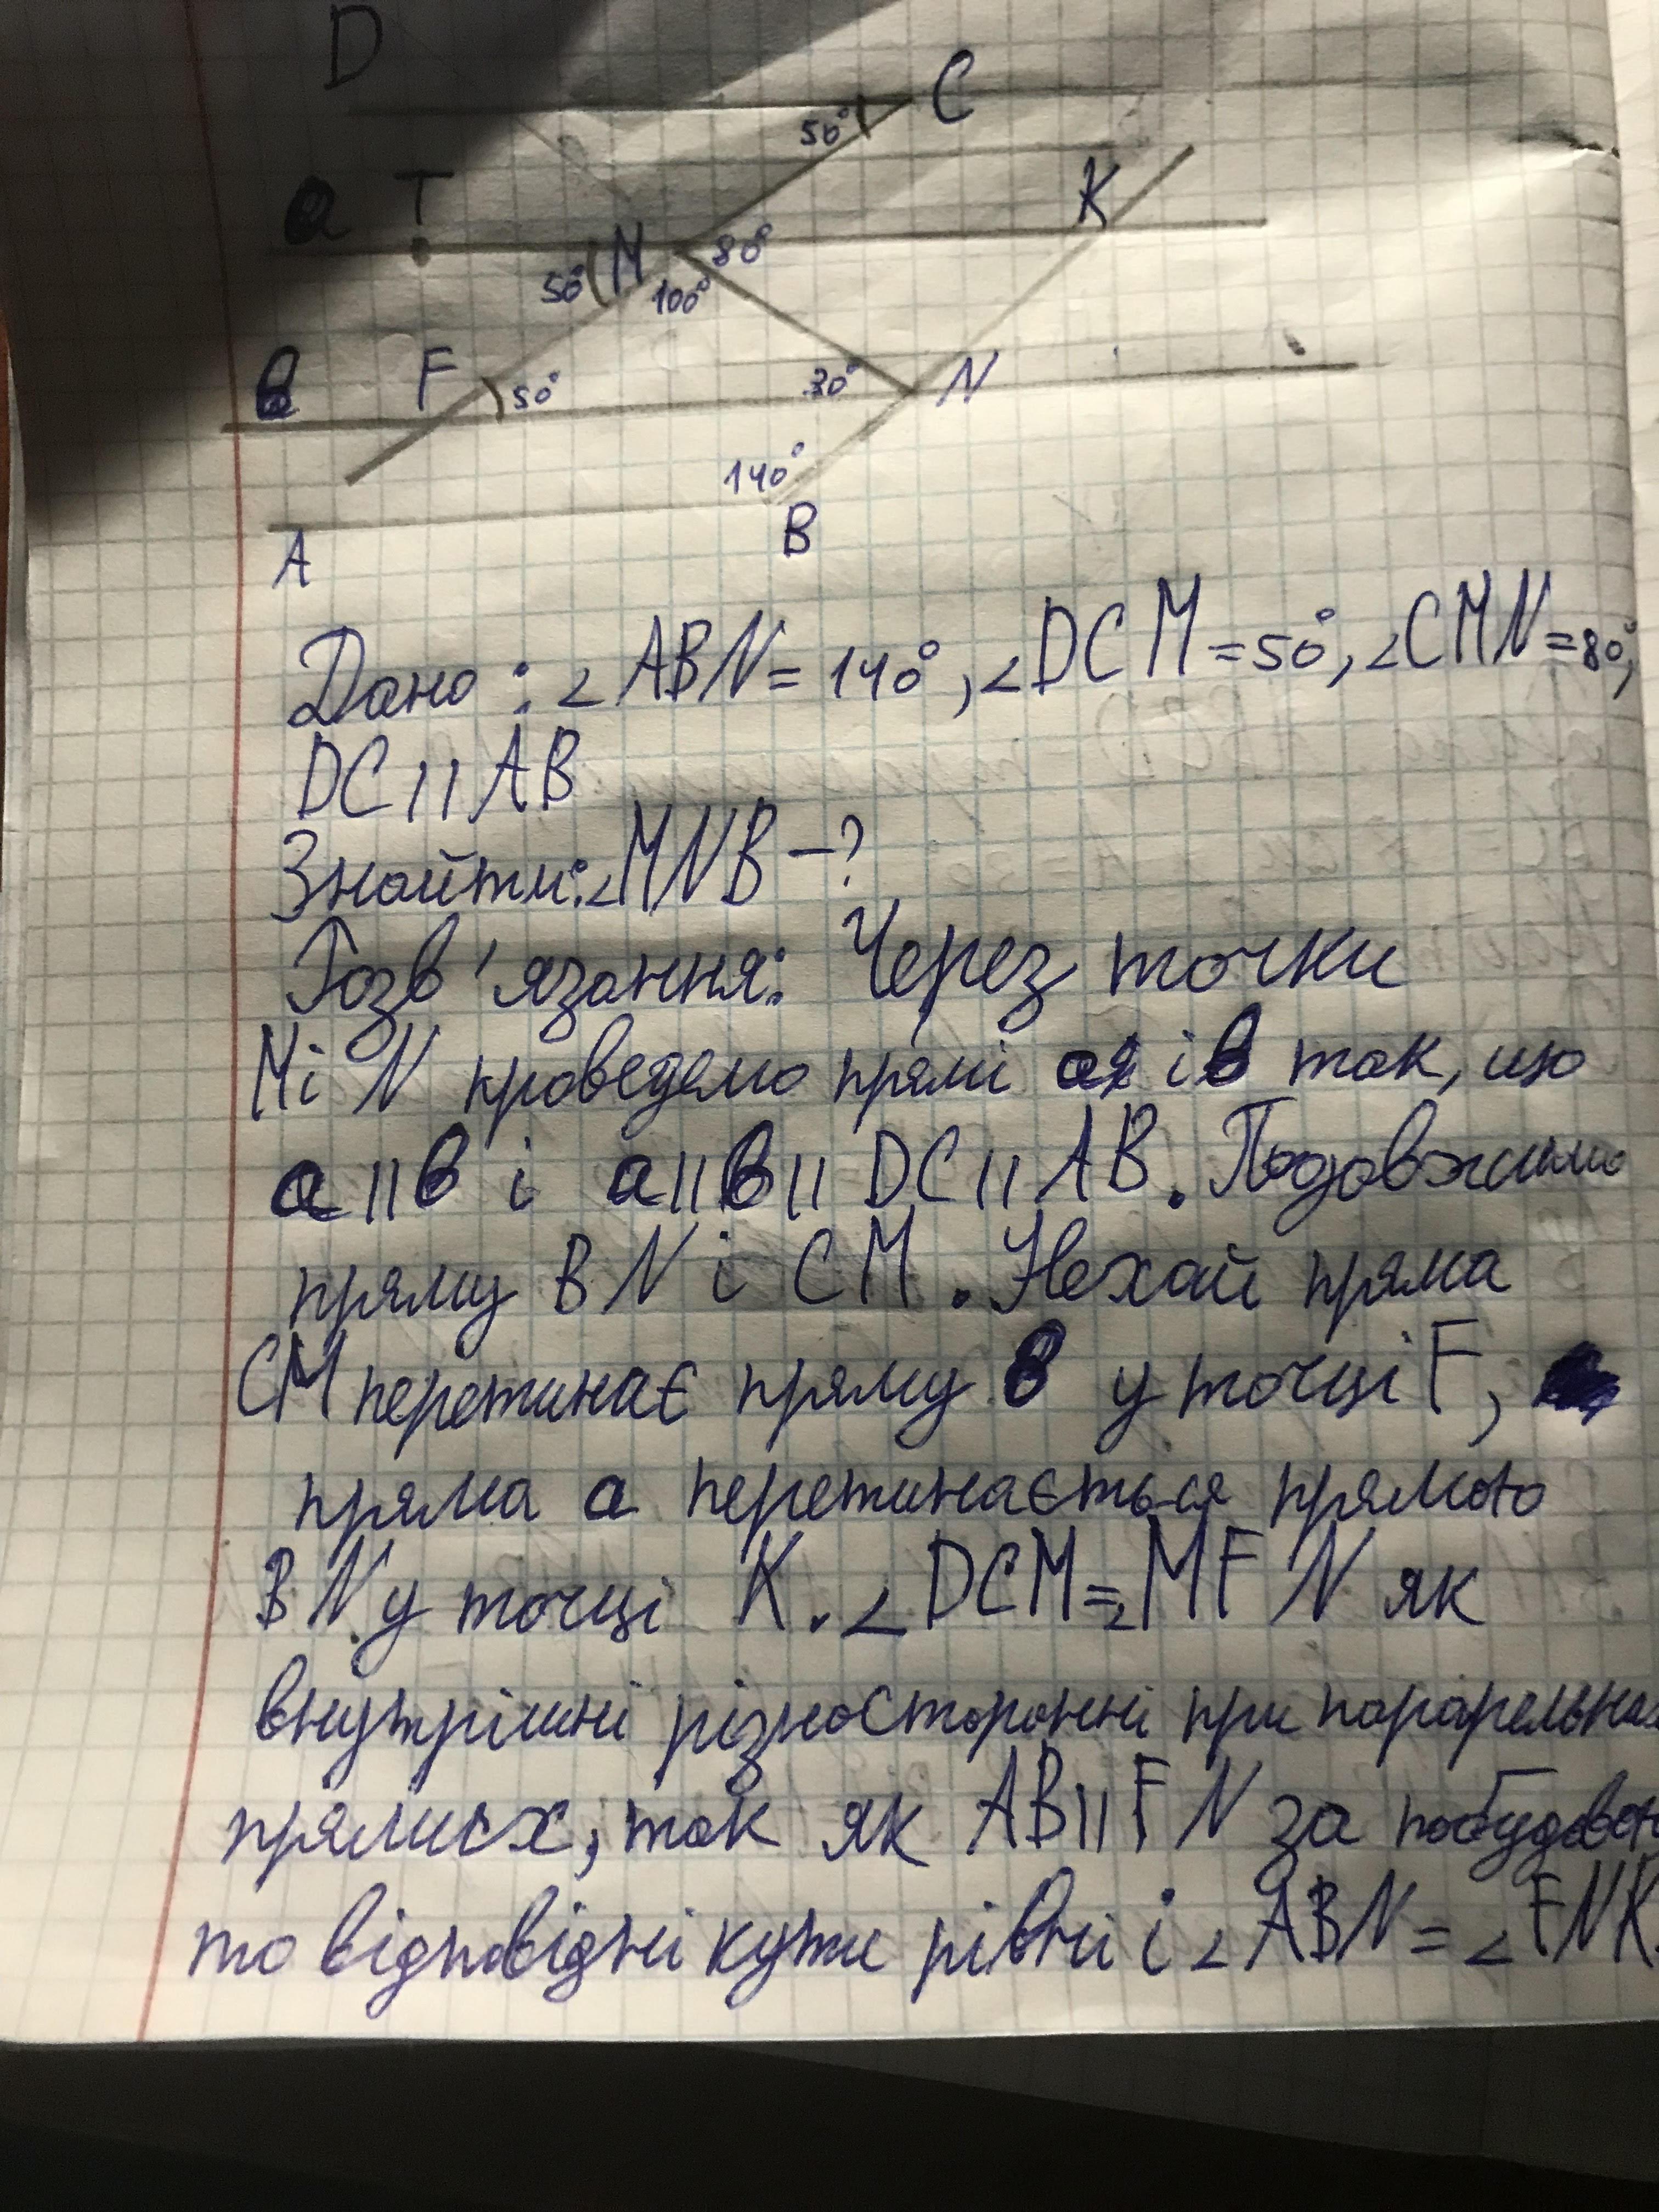 D
C
50°
a T
K
M 80°
50° 100°
F 50° 30° N
в
140°
A B
Дано: ∠ABN = 140°, ∠DCM = 50°, ∠CMN = 80°,
DC || AB
Знайти: ∠MNB – ?
Розв'язання: Через точки
M і N проведемо прямі а і в так, що
а || в і а || в || DC || AB. Подовжимо
пряму BN і CM. Нехай пряма
CM перетинає пряму в у точці F,
пряма а перетинається прямою
BN у точці K. ∠DCM = ∠MFN як
внутрішні різносторонні при
прямих, так як AB || FN за
то відповідні кути рівні і ∠ABN = ∠FNK.